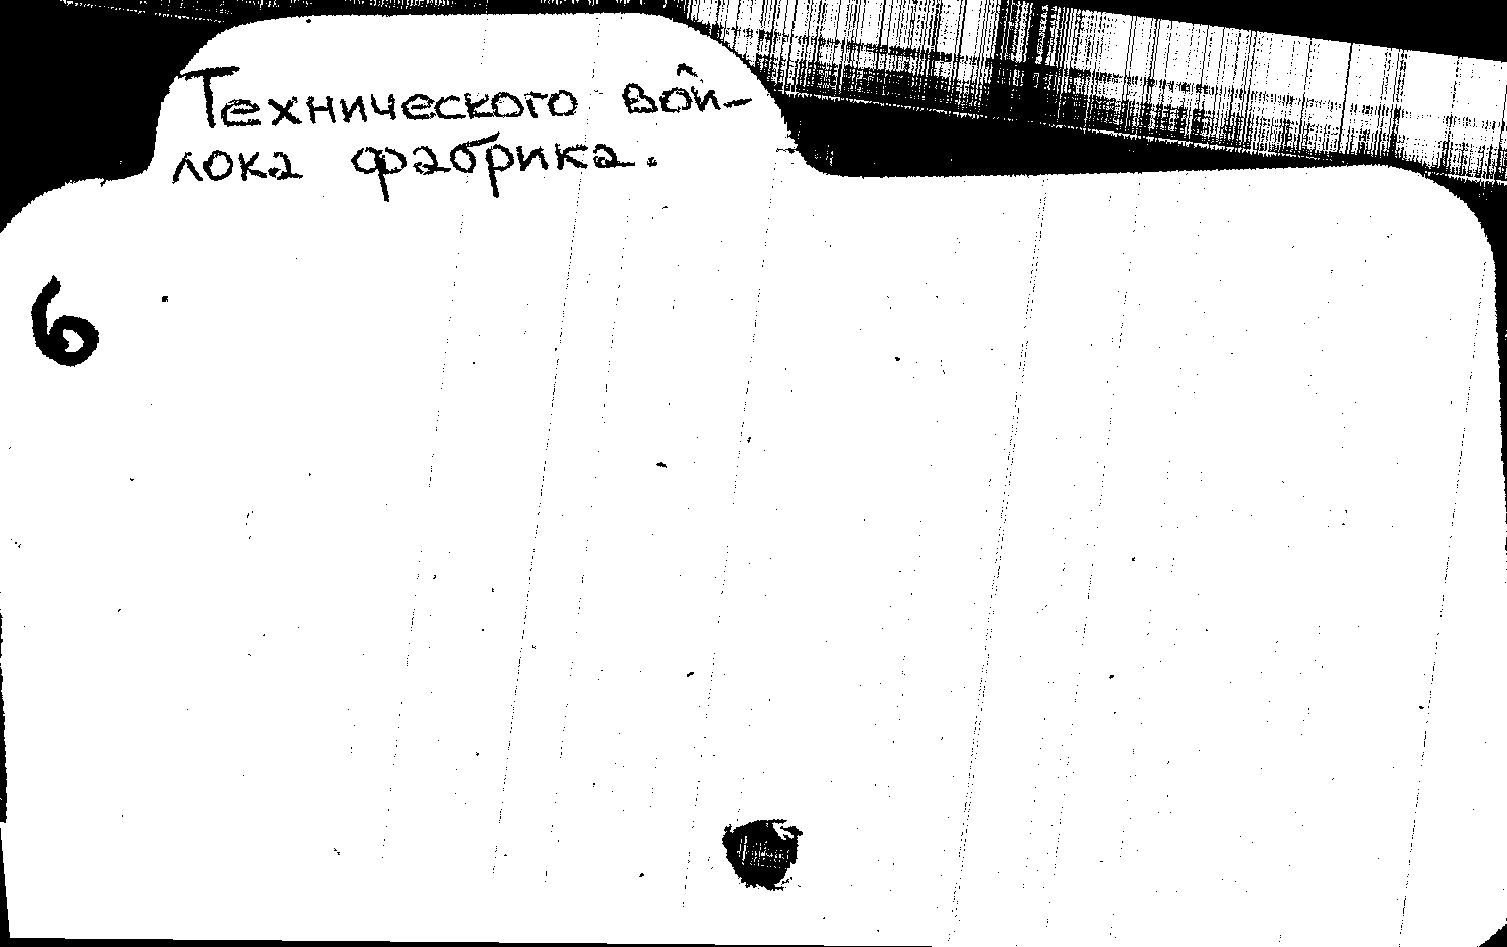 Технического вой-
лока фабрика.
6